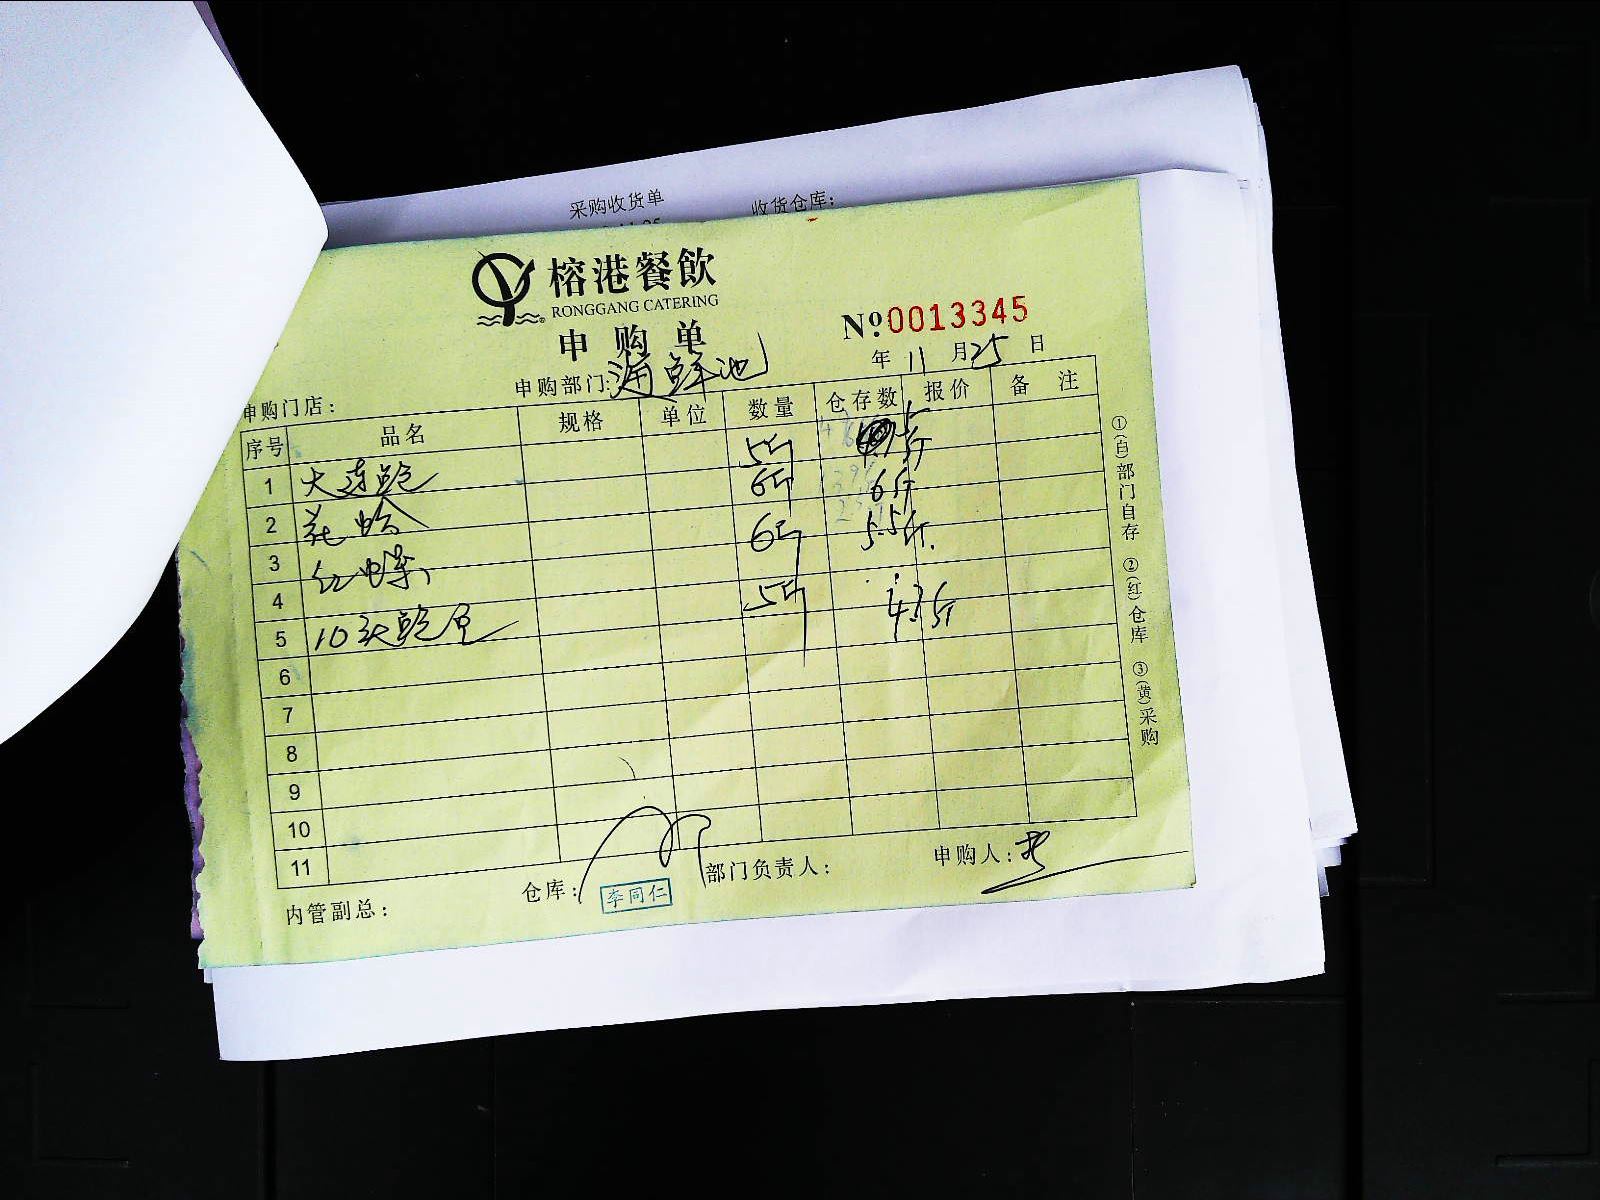 采购收货单 收货仓库:
榕港餐飲
RONGGANG CATERING
申购单
№0013345
年 11 月 25 日
申购门店: 申购部门: 海鲜池
序号 品名 规格 单位 数量 仓存数 报价 备 注
1 大连鲍 5斤
2 花蛤 6斤 6斤
3 红蝶 6斤 5.5斤
4
5 10头鲍鱼 5斤 4.3斤
6
7
8
9
10
11
内管副总: 仓库: 李同仁 部门负责人: 申购人:
①(白)部门自存 ②(红)仓库 ③(黄)采购